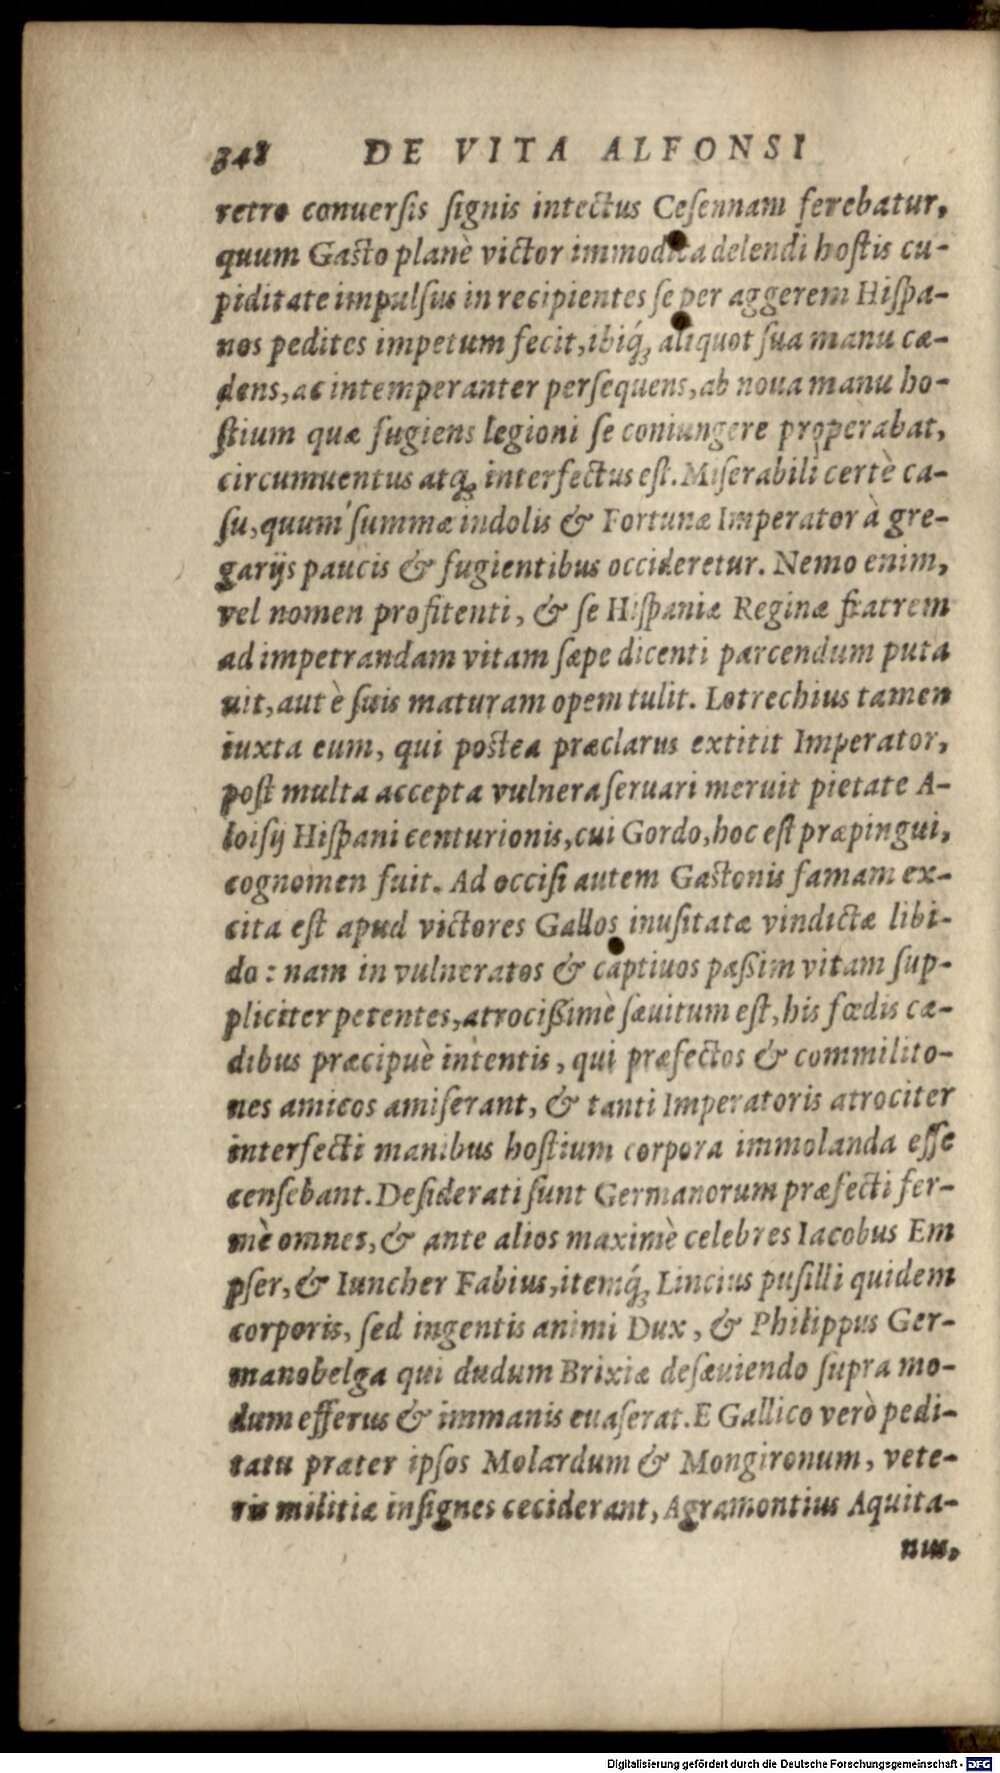 348 DE VITA ALFONSI
retro conuerſis ſignis intectus Ceſennam ferebatur,
quum Gaſto planè victor immodica delendi hoſtis cu-
piditate impulſus in recipientes ſe per aggerem Hiſpa-
nos pedites impetum fecit, ibiq́; aliquot ſua manu cæ-
dens, ac intemperanter perſequens, ab noua manu ho-
ſtium quæ fugiens legioni ſe coniungere properabat,
circumuentus atq; interfectus eſt. Miſerabili certè ca-
ſu, quum ſummæ indolis & Fortunæ Imperator à gre-
garijs paucis & fugientibus occideretur. Nemo enim,
vel nomen profitenti, & ſe Hiſpaniæ Reginæ fratrem
ad impetrandam vitam ſæpe dicenti parcendum puta
uit, aut è ſuis maturam opem tulit. Lotrechius tamen
iuxta eum, qui poſtea præclarus extitit Imperator,
poſt multa accepta vulnera ſeruari meruit pietate A-
loiſij Hiſpani centurionis, cui Gordo, hoc eſt præpingui,
cognomen fuit. Ad occiſi autem Gaſtonis famam ex-
cita eſt apud victores Gallos inuſitatæ vindictæ libi-
do: nam in vulneratos & captiuos paßim vitam ſup-
pliciter petentes, atrocißimè ſæuitum eſt, his fœdis cæ-
dibus præcipuè intentis, qui præfectos & commilito-
nes amicos amiſerant, & tanti Imperatoris atrociter
interfecti manibus hoſtium corpora immolanda eſſe
cenſebant. Deſiderati ſunt Germanorum præfecti fer-
mè omnes, & ante alios maximè celebres Iacobus Em
pſer, & Iuncher Fabius, itemq́; Lincius puſilli quidem
corporis, ſed ingentis animi Dux, & Philippus Ger-
manobelga qui dudum Brixiæ deſæuiendo ſupra mo-
dum efferus & immanis euaſerat. E Gallico verò pedi-
tatu præter ipſos Molardum & Mongironum, vete-
ris militiæ inſignes ceciderant, Agramontius Aquita-
nus,
Digitalisierung gefördert durch die Deutsche Forschungsgemeinschaft - DFG